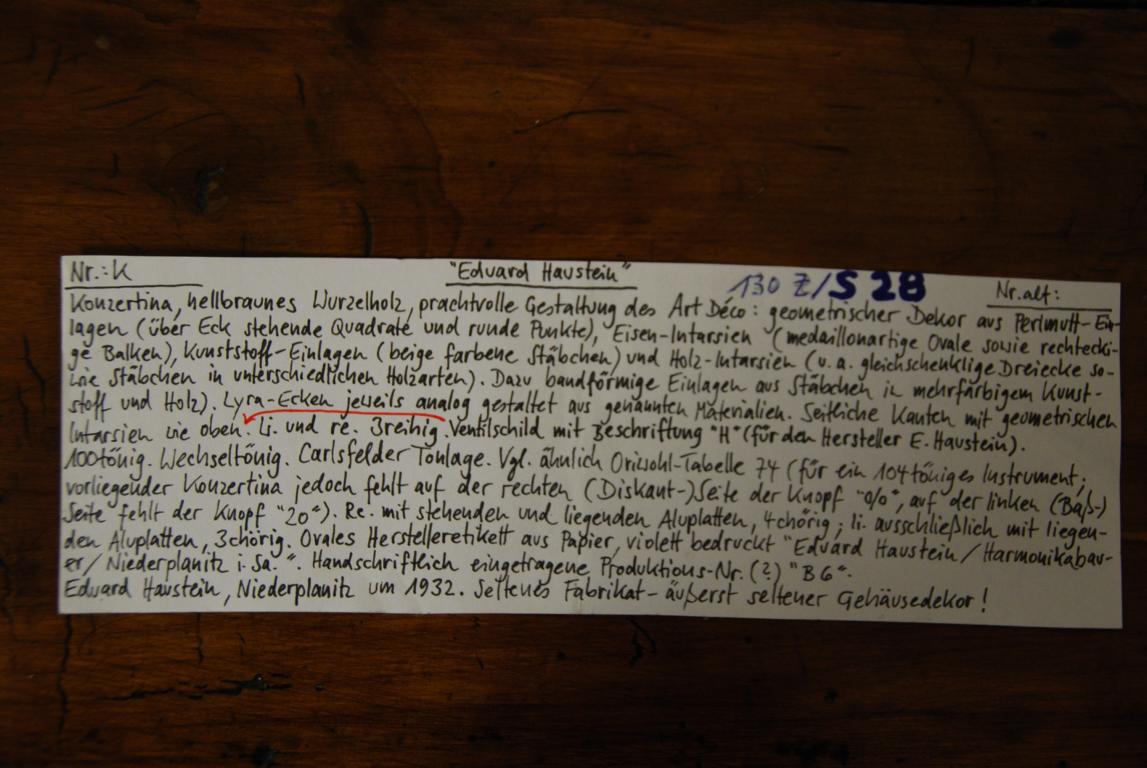 Nr.: K "Eduard Haustein" 130 Z/S 28 Nr. alt:
Konzertina, hellbraunes Wurzelholz, prachtvolle Gestaltung des Art Déco: geometrischer Dekor aus Perlmutt-Ein-
lagen (über Eck stehende Quadrate und runde Punkte), Eisen-Intarsien (medaillonartige Ovale sowie rechtecki-
ge Balken), Kunststoff-Einlagen (beige farbene Stäbchen) und Holz-Intarsien (u. a. gleichschenklige Dreiecke so-
wie Stäbchen in unterschiedlichen Holzarten). Dazu bandförmige Einlagen aus Stäbchen in mehrfarbigem Kunst-
stoff und Holz). Lyra-Ecken jeweils analog gestaltet aus genannten Materialien. Seitliche Kanten mit geometrischen
Intarsien wie oben. Li. und re. 3reihig. Ventilschild mit Beschriftung "H" (für den Hersteller E. Haustein).
100tönig. Wechseltönig. Carlsfelder Tonlage. Vgl. ähnlich Oriwohl-Tabelle 74 (für ein 104töniges Instrument;
vorliegender Konzertina jedoch fehlt auf der rechten (Diskant-)Seite der Knopf "0/0", auf der linken (Baß-)
Seite fehlt der Knopf "20"). Re. mit stehenden und liegenden Aluplatten, 4chörig; li. ausschließlich mit liegen-
den Aluplatten, 3chörig. Ovales Herstelleretikett aus Papier, violett bedruckt "Eduard Haustein/Harmonikabau-
er/Niederplanitz i. Sa.". Handschriftlich eingetragene Produktions-Nr. (?) "B6".
Eduard Haustein, Niederplanitz um 1932. Seltenes Fabrikat - äußerst seltener Gehäusedekor!